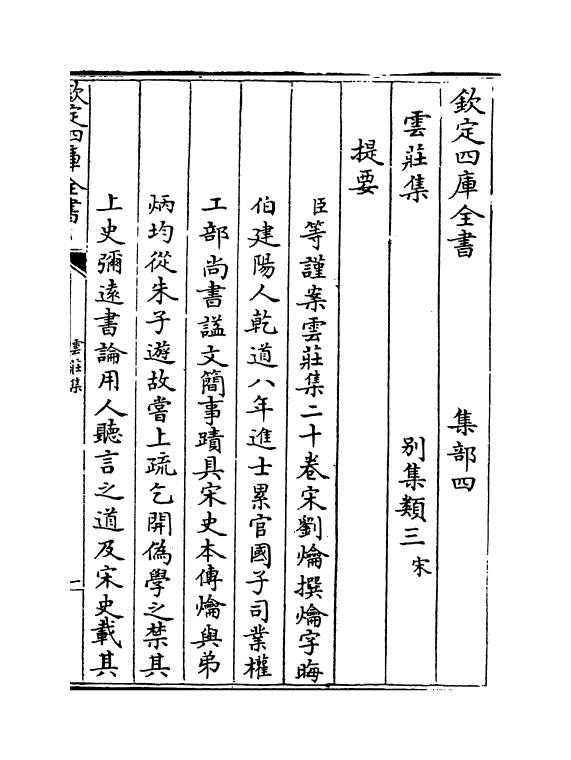 欽定四庫全書　集部四
雲莊集　別集類三宋
提要
臣等謹案雲莊集二十卷宋劉爚撰爚字晦
伯建陽人乾道八年進士累官國子司業權
工部尚書諡文簡事蹟具宋史本傳爚與弟
炳均從朱子遊故嘗上疏乞開偽學之禁其
上史彌遠書論用人聽言之道及宋史載其
欽定四庫全書
雲莊集
一